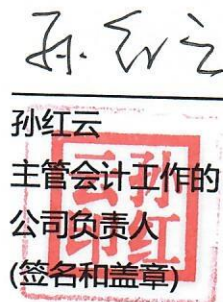 孙红云
孙红云
主管会计工作的
公司负责人
(签名和盖章)
孙红云印